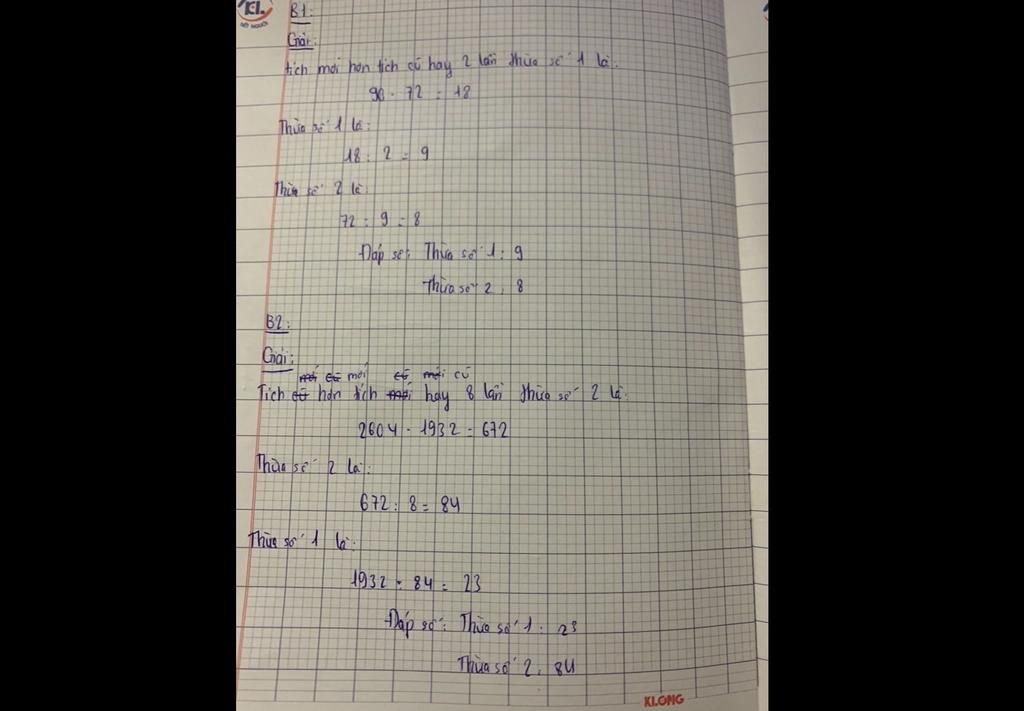 KL
B1:
Giải:
tích mới hơn tích cũ hay 2 lần thừa số 1 là:
90 - 72 = 18
Thừa số 1 là:
18 : 2 = 9
Thừa số 2 là:
72 : 9 = 8
Đáp số: Thừa số 1: 9
Thừa số 2: 8
B2:
Giải:
mới cũ mới cũ mới cũ
Tích cũ hơn tích mới hay 8 lần thừa số 2 là:
2604 - 1932 = 672
Thừa số 2 là:
672 : 8 = 84
Thừa số 1 là:
1932 : 84 = 23
Đáp số: Thừa số 1: 23
Thừa số 2: 84
KLONG